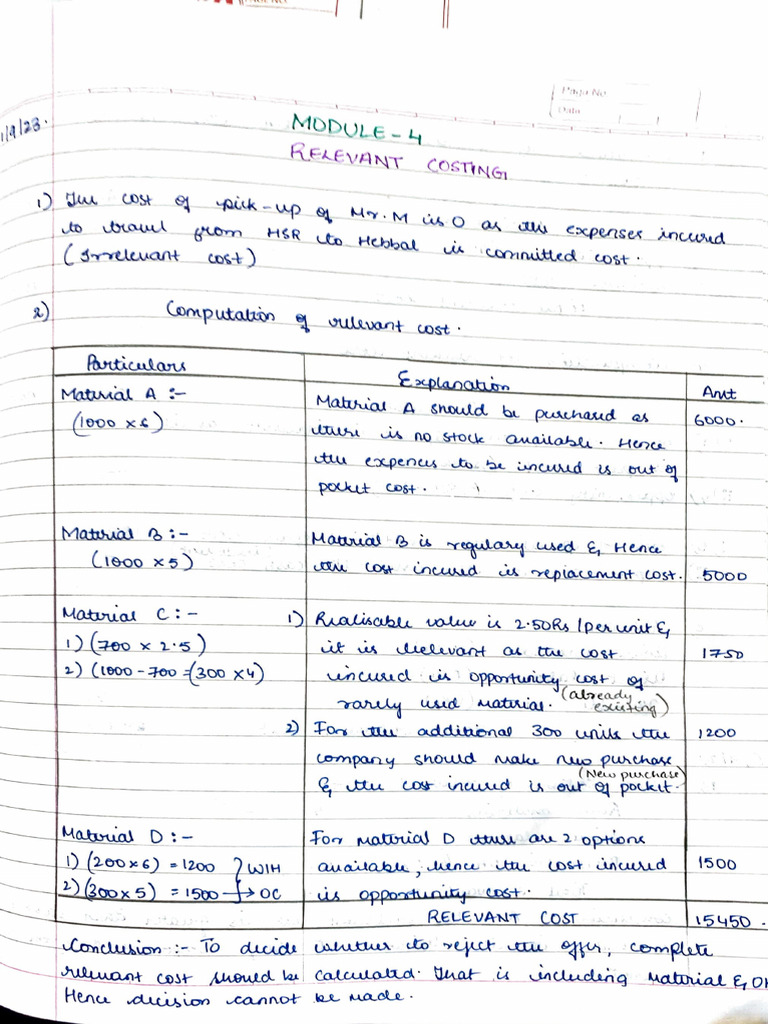 Page No
Date
1/9/23.
MODULE - 4
RELEVANT COSTING
1) The cost of pick-up of Mr. M is 0 as the expenses incured
to travel from HSR to Hebbal is committed cost.
(Irrelevant cost)
2) Computation of relevant cost.
Particulars Explanation Amt
Material A :- Material A should be purchased as 6000.
(1000 x 6) there is no stock available. Hence
the expences to be incured is out of
pocket cost.
Material B :- Material B is regulary used & Hence
(1000 x 5) the cost incured is replacement cost. 5000
Material C :- 1) Realisable value is 2.50Rs /per unit &
1) (700 x 2.5) it is relevant as the cost 1750
2) (1000 - 700 = (300 x 4) incured is opportunity cost of
rarely used material. (already existing)
2) For the additional 300 units the 1200
company should make new purchase
& the cost incured is out of pocket. (New purchase)
Material D :- For material D there are 2 options
1) (200 x 6) = 1200 } WIH available, hence the cost incured 1500
2) (300 x 5) = 1500 → OC is opportunity cost.
RELEVANT COST 15450.
Conclusion :- To decide whether to reject the offer, complete
relevant cost should be calculated. That is including material & OH
Hence decision cannot be made.